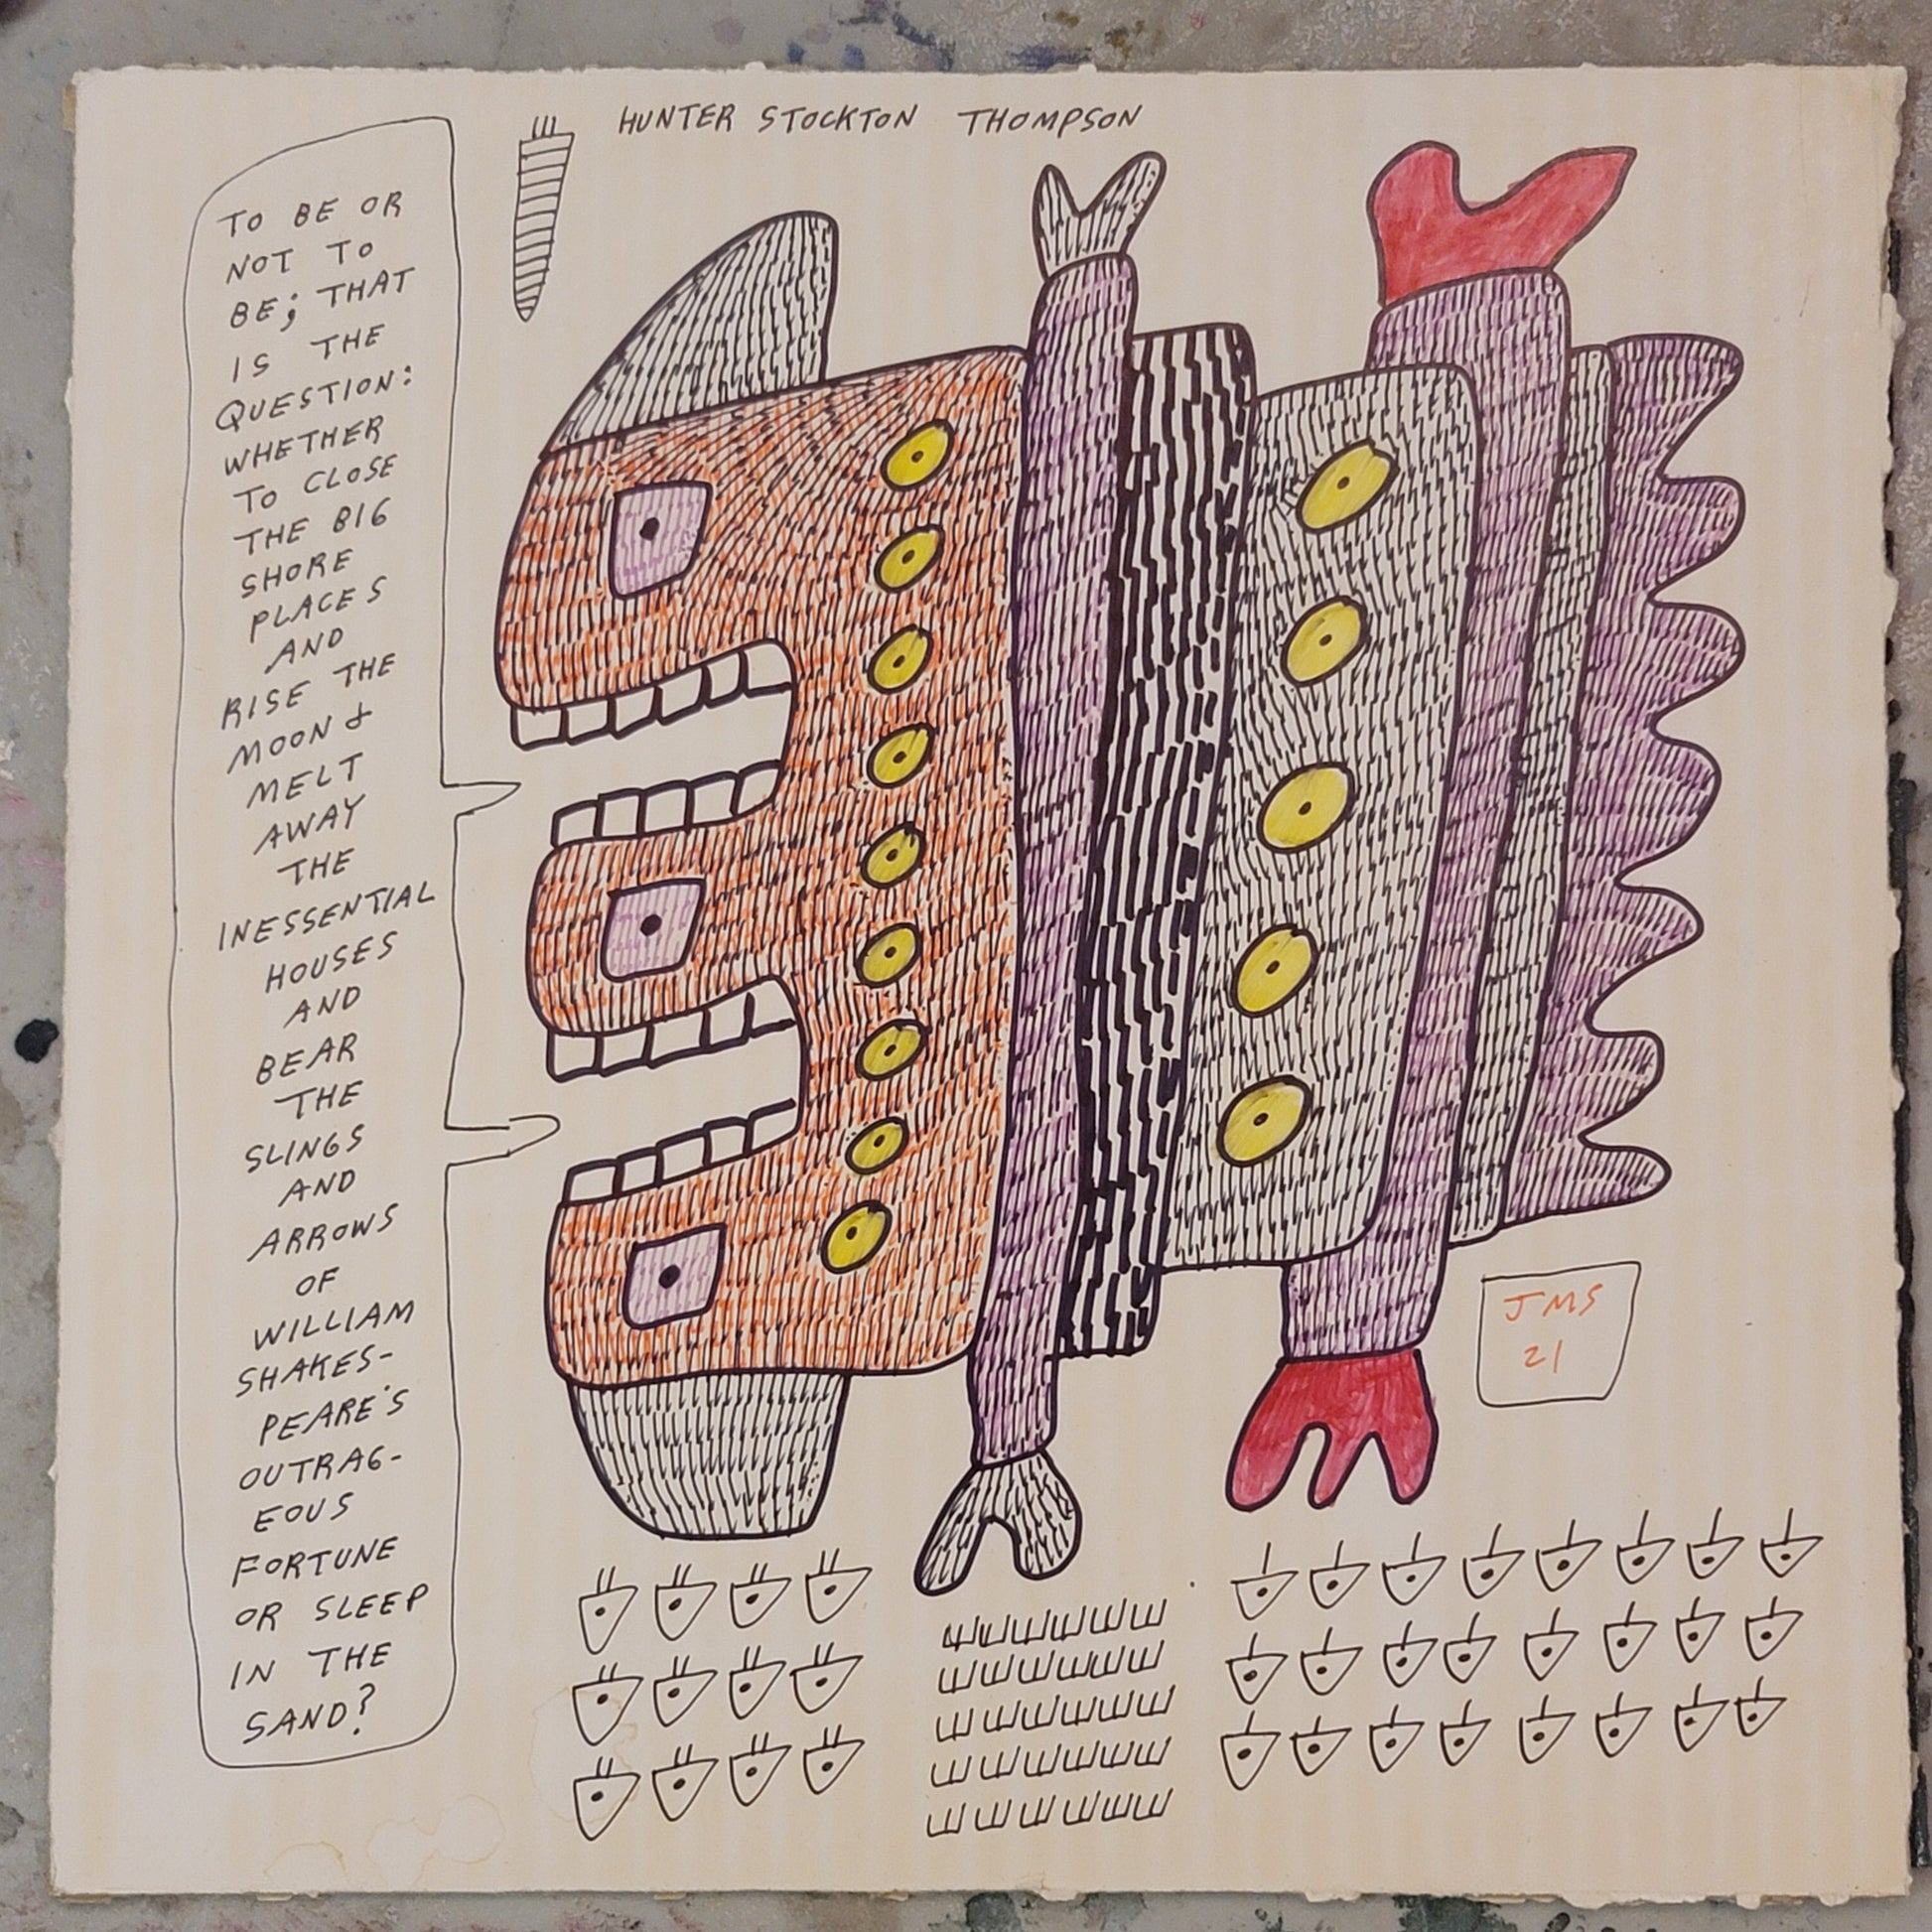 HUNTER STOCKTON THOMPSON
TO BE OR
NOT TO
BE; THAT
IS THE
QUESTION:
WHETHER
TO CLOSE
THE BIG
SHORE
PLACES
AND
RISE THE
MOON &
MELT
AWAY
THE
INESSENTIAL
HOUSES
AND
BEAR
THE
SLINGS
AND
ARROWS
OF
WILLIAM
SHAKES-
PEARE'S
OUTRAG-
EOUS
FORTUNE
OR SLEEP
IN THE
SAND?
JMS
21